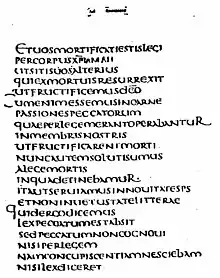 ETUOSMORTIFICATIESTISLEGI
PERCORPUSXPIAMAII
UTSITISUOSALTERIUS
QUIEXMORTUISRESURREXIT
UTFRUCTIFICEMUSDEO
UMENIMESSEMUSINCARNE
PASSIONESPECCATORUM
QUAEPERLEGEMERANTOPERABANTUR
INMEMBRISNOSTRIS
UTFRUCTIFICARENTMORTI
NUNCAUTEMSOLUTISUMUS
ALEGEMORTIS
INQUADETINEBAMUR
ITAUTSERUIAMUSINNOUITATESPS
ETNONINUETUSTATELITTERAE
QUIDERGODICEMUS
LEXPECCATUMESTABSIT
SEDPECCATUMNONCOGNOUI
NISIPERLEGEM
NAMCONCUPISCENTIAMNESCIEBAM
NISILEXDICERET